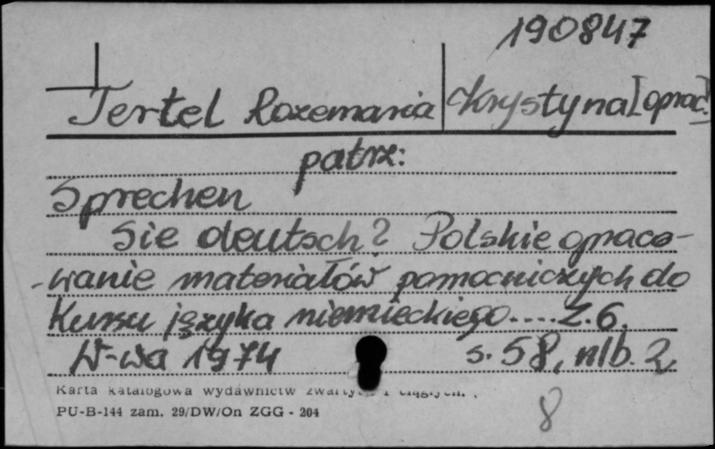 190847
Tertel Rozemaria Krystyna [oprac.]
patrz:
Sprechen
Sie deutsch? Polskie opraco-
-wanie materiałów pomocniczych do
Kursu języka niemieckiego.... Z. 6.
W-wa 1974 s. 58, nlb. 2
Karta katalogowa wydawnictw zwartych i ciągłych.
PU-B-144 zam. 29/DW/On ZGG - 204
8